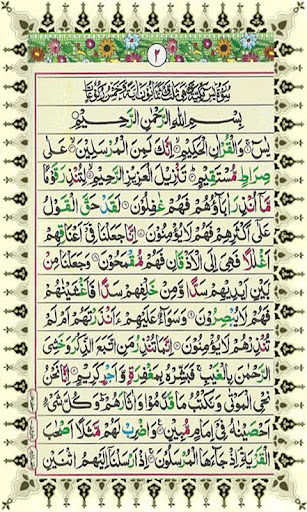 ۲
بِسْمِ اللهِ الرَّحْمٰنِ الرَّحِيْمِ
يٰسٓ ۚ وَالْقُرْاٰنِ الْحَكِيْمِ ۙ اِنَّكَ لَمِنَ الْمُرْسَلِيْنَ ۙ عَلٰى
صِرَاطٍ مُّسْتَقِيْمٍ ؕ تَنْزِيْلَ الْعَزِيْزِ الرَّحِيْمِ ۙ لِتُنْذِرَ قَوْمًا
مَّاۤ اُنْذِرَ اٰبَآؤُهُمْ فَهُمْ غٰفِلُوْنَ لَقَدْ حَقَّ الْقَوْلُ
عَلٰۤى اَكْثَرِهِمْ فَهُمْ لَا يُؤْمِنُوْنَ اِنَّا جَعَلْنَا فِيْۤ اَعْنَاقِهِمْ
اَغْلٰلًا فَهِيَ اِلَى الْاَذْقَانِ فَهُمْ مُّقْمَحُوْنَ وَجَعَلْنَا مِنْۢ
بَيْنِ اَيْدِيْهِمْ سَدًّا وَّمِنْ خَلْفِهِمْ سَدًّا فَاَغْشَيْنٰهُمْ
فَهُمْ لَا يُبْصِرُوْنَ وَسَوَآءٌ عَلَيْهِمْ ءَاَنْذَرْتَهُمْ اَمْ لَمْ
تُنْذِرْهُمْ لَا يُؤْمِنُوْنَ اِنَّمَا تُنْذِرُ مَنِ اتَّبَعَ الذِّكْرَ وَخَشِيَ
الرَّحْمٰنَ بِالْغَيْبِ ۚ فَبَشِّرْهُ بِمَغْفِرَةٍ وَّاَجْرٍ كَرِيْمٍ اِنَّا نَحْنُ
نُحْيِ الْمَوْتٰى وَنَكْتُبُ مَا قَدَّمُوْا وَاٰثَارَهُمْ ؕ وَكُلَّ شَيْءٍ
اَحْصَيْنٰهُ فِيْۤ اِمَامٍ مُّبِيْنٍ وَاضْرِبْ لَهُمْ مَّثَلًا اَصْحٰبَ
الْقَرْيَةِ ۘ اِذْ جَآءَهَا الْمُرْسَلُوْنَ ۚ اِذْ اَرْسَلْنَاۤ اِلَيْهِمُ اثْنَيْنِ